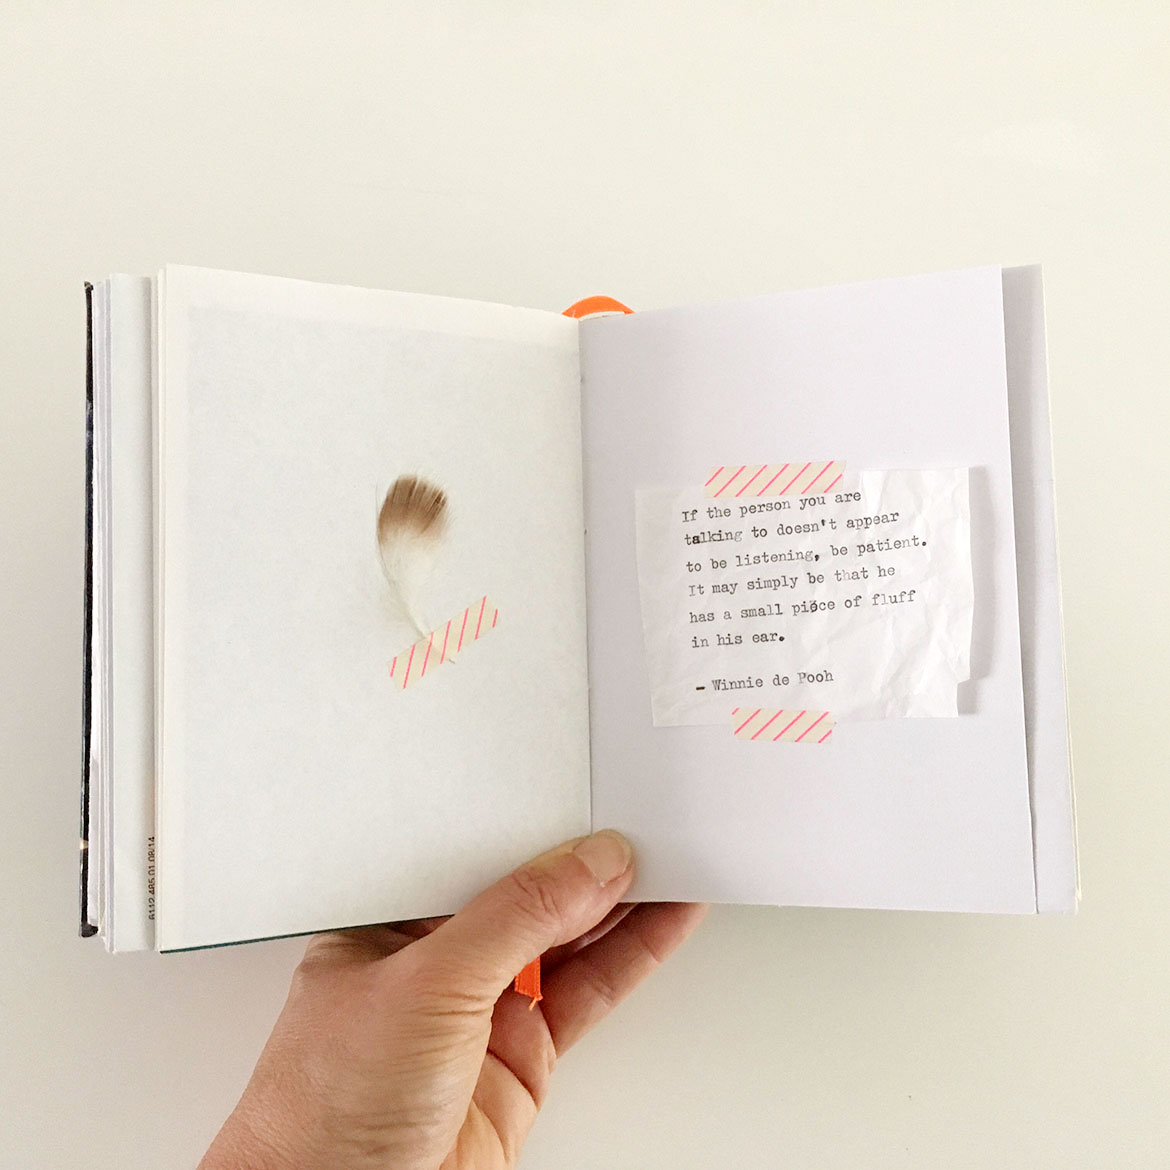 If the person you are
talking to doesn't appear
to be listening, be patient.
It may simply be that he
has a small piøce of fluff
in his ear.
— Winnie de Pooh
6112.485.01.08/14